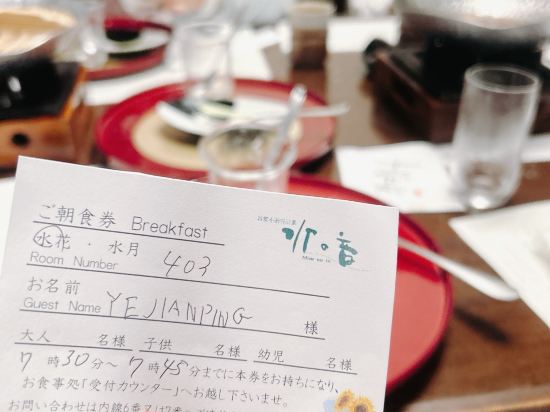 ご朝食券 Breakfast
水の音
水花・水月
Room Number 403
お名前
Guest Name YEJIANPING 様
大人 名様 子供 名様 幼児 名様
7時30分～7時45分までに本券をお持ちになり、
お食事処「受付カウンター」へお越し下さいませ。